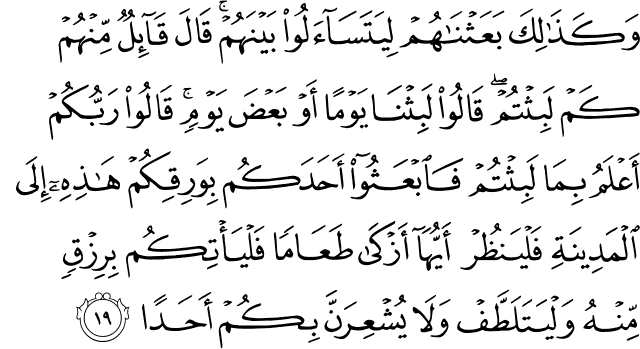 وَكَذَٰلِكَ بَعَثْنَٰهُمْ لِيَتَسَآءَلُوا۟ بَيْنَهُمْ ۚ قَالَ قَآئِلٌ مِّنْهُمْ
كَمْ لَبِثْتُمْ ۖ قَالُوا۟ لَبِثْنَا يَوْمًا أَوْ بَعْضَ يَوْمٍ ۚ قَالُوا۟ رَبُّكُمْ
أَعْلَمُ بِمَا لَبِثْتُمْ فَٱبْعَثُوٓا۟ أَحَدَكُم بِوَرِقِكُمْ هَٰذِهِۦٓ إِلَى
ٱلْمَدِينَةِ فَلْيَنظُرْ أَيُّهَآ أَزْكَىٰ طَعَامًا فَلْيَأْتِكُم بِرِزْقٍ
مِّنْهُ وَلْيَتَلَطَّفْ وَلَا يُشْعِرَنَّ بِكُمْ أَحَدًا ١٩